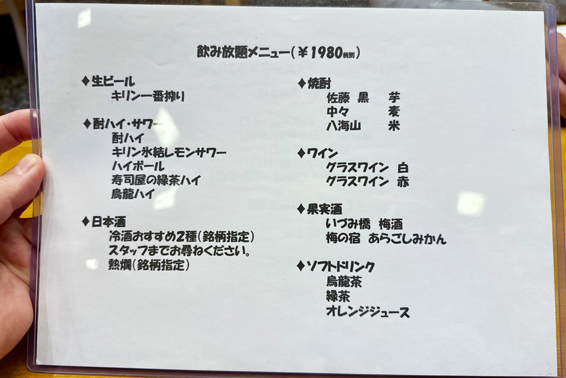 飲み放題メニュー(¥1980税別)
♦生ビール
キリン一番搾り
♦酎ハイ・サワー
酎ハイ
キリン氷結レモンサワー
ハイボール
寿司屋の緑茶ハイ
烏龍ハイ
♦日本酒
冷酒おすすめ2種(銘柄指定)
スタッフまでお尋ねください。
熱燗(銘柄指定)
♦焼酎
佐藤 黒 芋
中々 麦
八海山 米
♦ワイン
グラスワイン 白
グラスワイン 赤
♦果実酒
いづみ橋 梅酒
梅の宿 あらごしみかん
♦ソフトドリンク
烏龍茶
緑茶
オレンジジュース